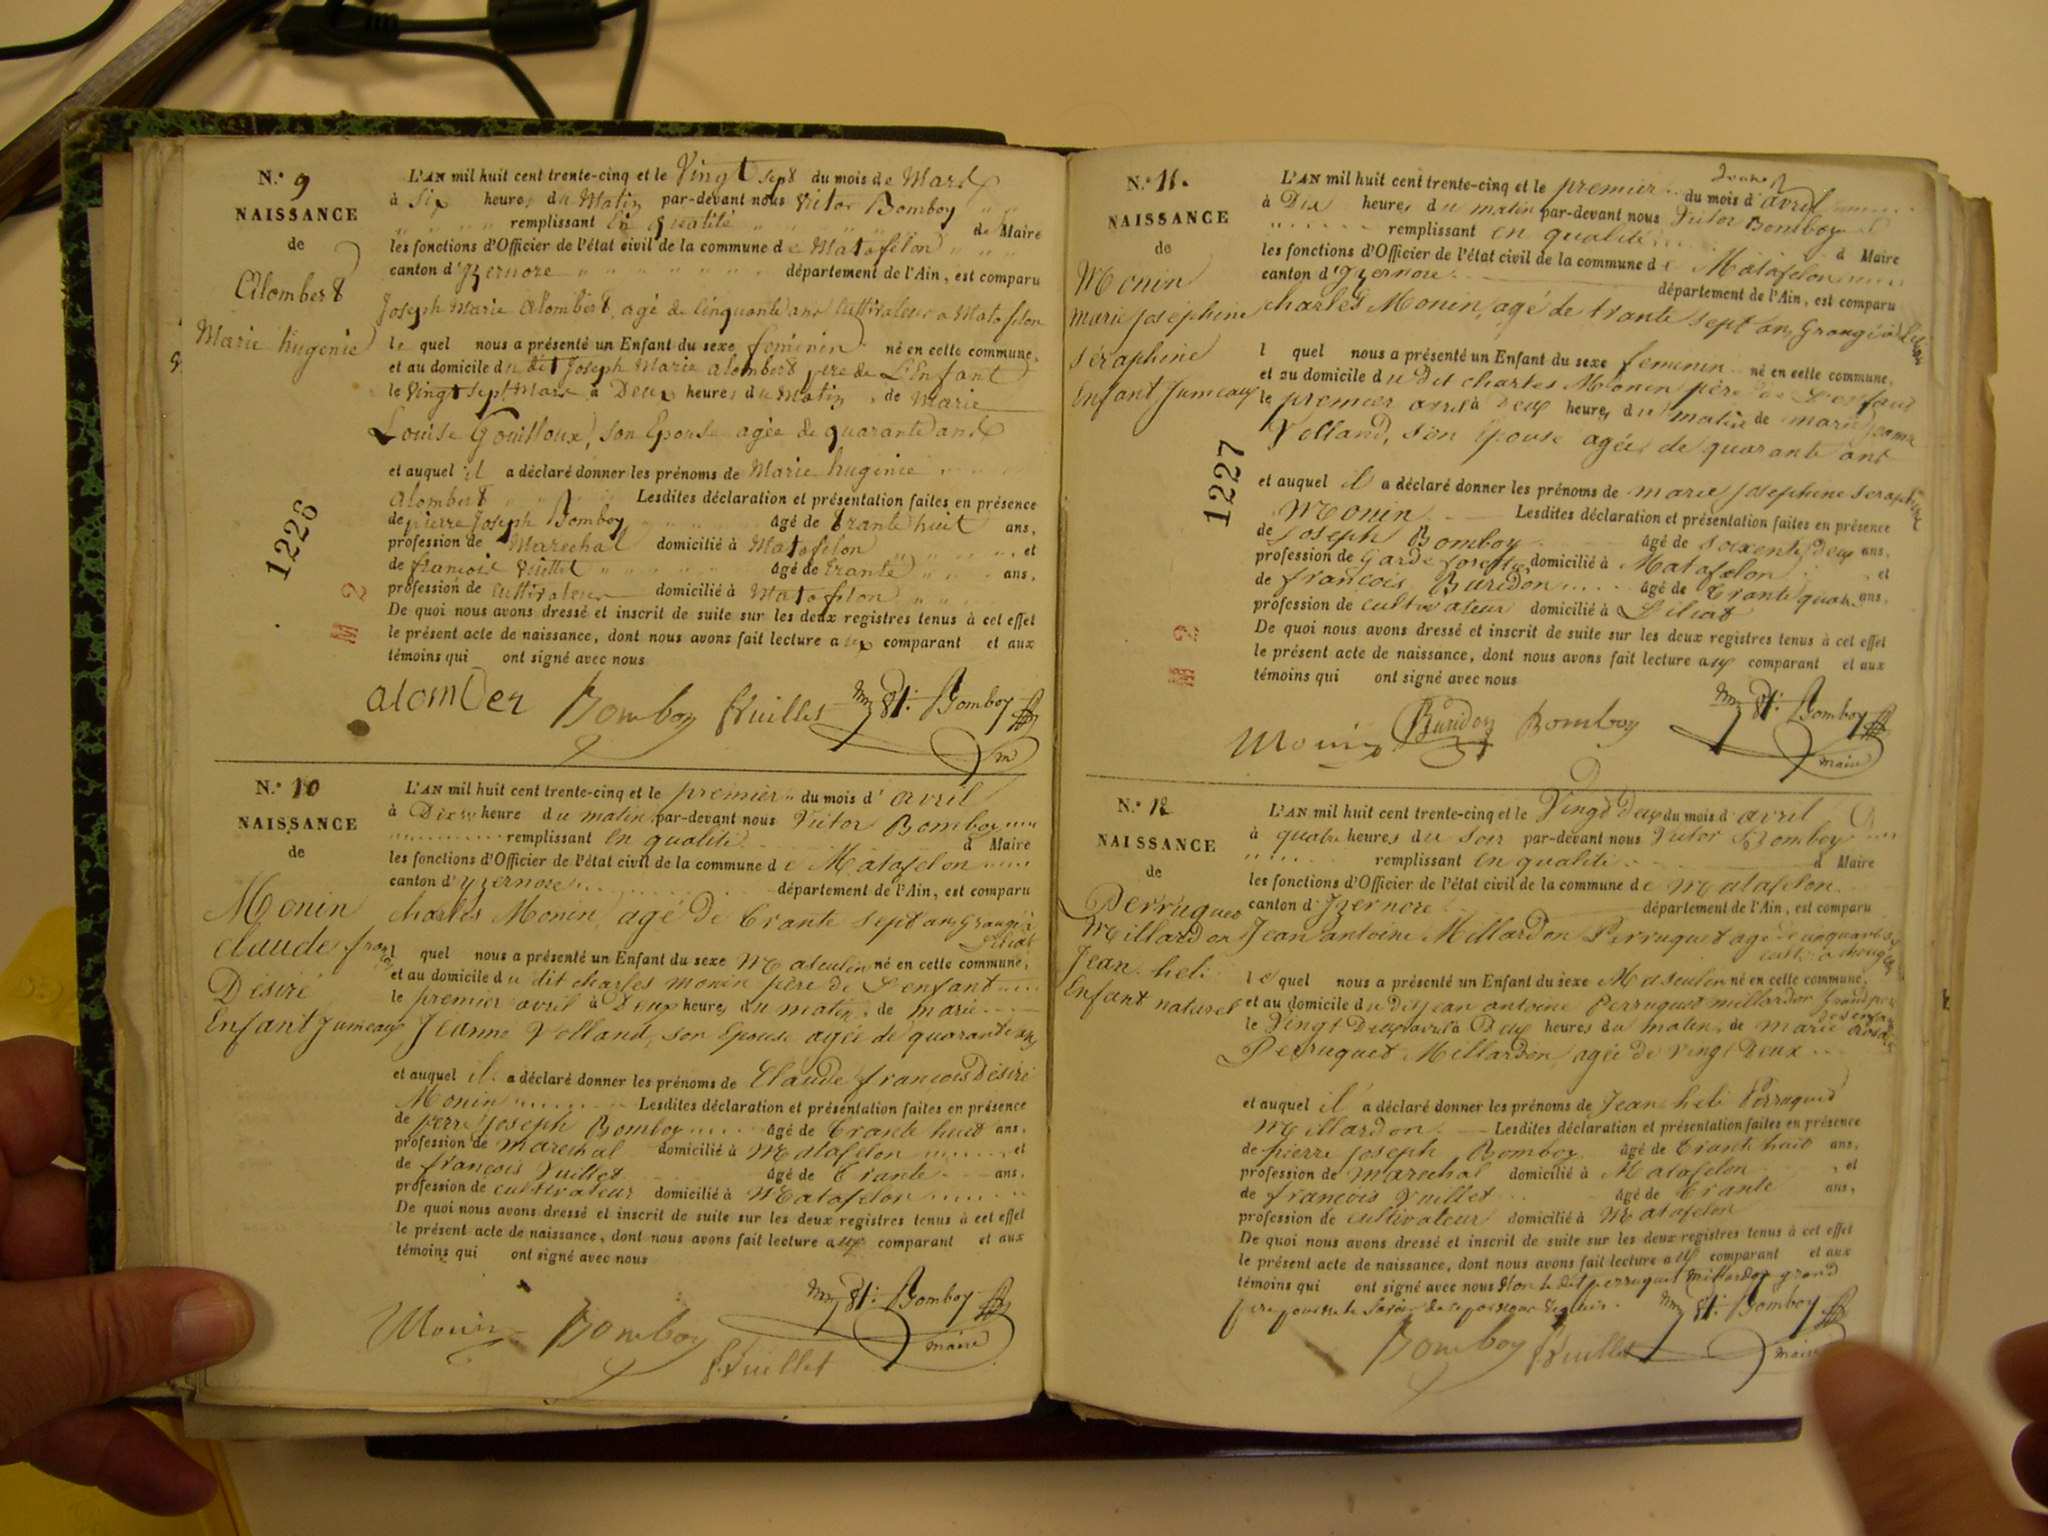 N.º 9
NAISSANCE
de
Alombert
Marie hugenie
1226
M 2
L'AN mil huit cent trente-cinq et le Vingt sept du mois de Mars
à Six heures du Matin par-devant nous Victor Bomboy
remplissant En qualité de Maire
les fonctions d'Officier de l'état civil de la commune de Matafelon
canton d'Yzernore département de l'Ain, est comparu
Joseph Marie Alombert, agé de Cinquante ans Cultivateur a Matafelon
le quel nous a présenté un Enfant du sexe feminin né en cette commune,
et au domicile du dit Joseph Marie alombert pere de L'Enfant
le Vingt sept Mars à Deux heures du Matin, de Marie
Louise Gouilloux, son Epouse agée de quarante ans
et auquel il a déclaré donner les prénoms de Marie hugenie
Alombert Lesdites déclaration et présentation faites en présence
de pierre Joseph Bomboy âgé de trante huit ans,
profession de Marechal domicilié à Matafelon et
de francois Vuillet âgé de trante ans,
profession de Cultivateur domicilié à Matafelon
De quoi nous avons dressé et inscrit de suite sur les deux registres tenus à cet effet
le présent acte de naissance, dont nous avons fait lecture aux comparant et aux
témoins qui ont signé avec nous
alomber Bomboy fVuillet Bomboy
N.º 10
NAISSANCE
de
Monin
Claude franc
Désiré
Enfant Jumeaux
L'AN mil huit cent trente-cinq et le premier du mois d'avril
à Dix heure du matin par-devant nous Victor Bomboy
remplissant en qualité d Maire
les fonctions d'Officier de l'état civil de la commune de Matafelon
canton d'yzernore département de l'Ain, est comparu
charles Monin, agé de trante sept an Grangé à
Siliat
l quel nous a présenté un Enfant du sexe Masculin né en cette commune,
et au domicile du dit charles monin père de L'enfant
le premier avril à Deux heures du matin, de marie
Jeanne Volland, son Epouse agée de quarante ans
et auquel il a déclaré donner les prénoms de Claude francois Désiré
Monin Lesdites déclaration et présentation faites en présence
de pierre joseph Bomboy âgé de trante huit ans,
profession de marechal domicilié à Matafelon et
de francois Vuillet âgé de trante ans,
profession de cultivateur domicilié à Matafelon
De quoi nous avons dressé et inscrit de suite sur les deux registres tenus à cet effet
le présent acte de naissance, dont nous avons fait lecture aux comparant et aux
témoins qui ont signé avec nous
Monin Bomboy fVuillet Bomboy
maire
N.º 11.
NAISSANCE
de
Monin
marie josephine
séraphine
Enfant Jumeaux
1227
M 2
L'AN mil huit cent trente-cinq et le premier du mois d'avril
à Dix heures du matin par-devant nous Victor Bomboy
remplissant en qualité d Maire
les fonctions d'Officier de l'état civil de la commune de Matafelon
canton d'yzernore département de l'Ain, est comparu
charles Monin, agé de trante sept an, Grangé à
l quel nous a présenté un Enfant du sexe feminin né en cette commune,
et au domicile du Dit charles Monin père de L'enfant
le premier avril à deux heures du matin de marie jeanne
Volland, son Epouse agée de quarante ans
et auquel il a déclaré donner les prénoms de marie josephine seraphine
Monin Lesdites déclaration et présentation faites en présence
de Joseph Bomboy âgé de soixente deux ans,
profession de Garde forestie domicilié à Matafelon et
de francois Buridon âgé de trante quatre ans,
profession de cultivateur domicilié à Siliat
De quoi nous avons dressé et inscrit de suite sur les deux registres tenus à cet effet
le présent acte de naissance, dont nous avons fait lecture aux comparant et aux
témoins qui ont signé avec nous
Monin Buridon Bomboy Bomboy
maire
N.º 12
NAISSANCE
de
Perruquet
Millardon
Jean heli
Enfant naturel
L'AN mil huit cent trente-cinq et le Vingt Deux du mois d'avril
à quatre heures du Soir par-devant nous Victor Bomboy
remplissant en qualité d Maire
les fonctions d'Officier de l'état civil de la commune de Matafelon
canton d'Izernore département de l'Ain, est comparu
Jean antoine Millardon Perruquet agé de
le quel nous a présenté un Enfant du sexe Masculin né en cette commune,
et au domicile du Dit jean antoine Perruquet millardon Grand père
de Lenfant
le Vingt Deux avril à Deux heures du matin, de marie Rosalie
Perruquet Millardon, agée de vingt Deux
et auquel il a déclaré donner les prénoms de Jean heli Perruquet
Millardon Lesdites déclaration et présentation faites en présence
de pierre joseph Bomboy âgé de trante huit ans,
profession de marechal domicilié à Matafelon et
de francois Vuillet âgé de trante ans,
profession de cultivateur domicilié à Matafelon
De quoi nous avons dressé et inscrit de suite sur les deux registres tenus à cet effet
le présent acte de naissance, dont nous avons fait lecture aux comparant et aux
témoins qui ont signé avec nous non le dit perruquet millardon grand
père pour ne le savoir de ce
Bomboy fVuillet Bomboy
maire